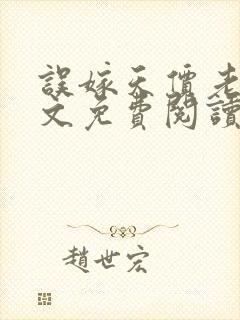 誤嫁天價老
文免費閱讀
趙世宏